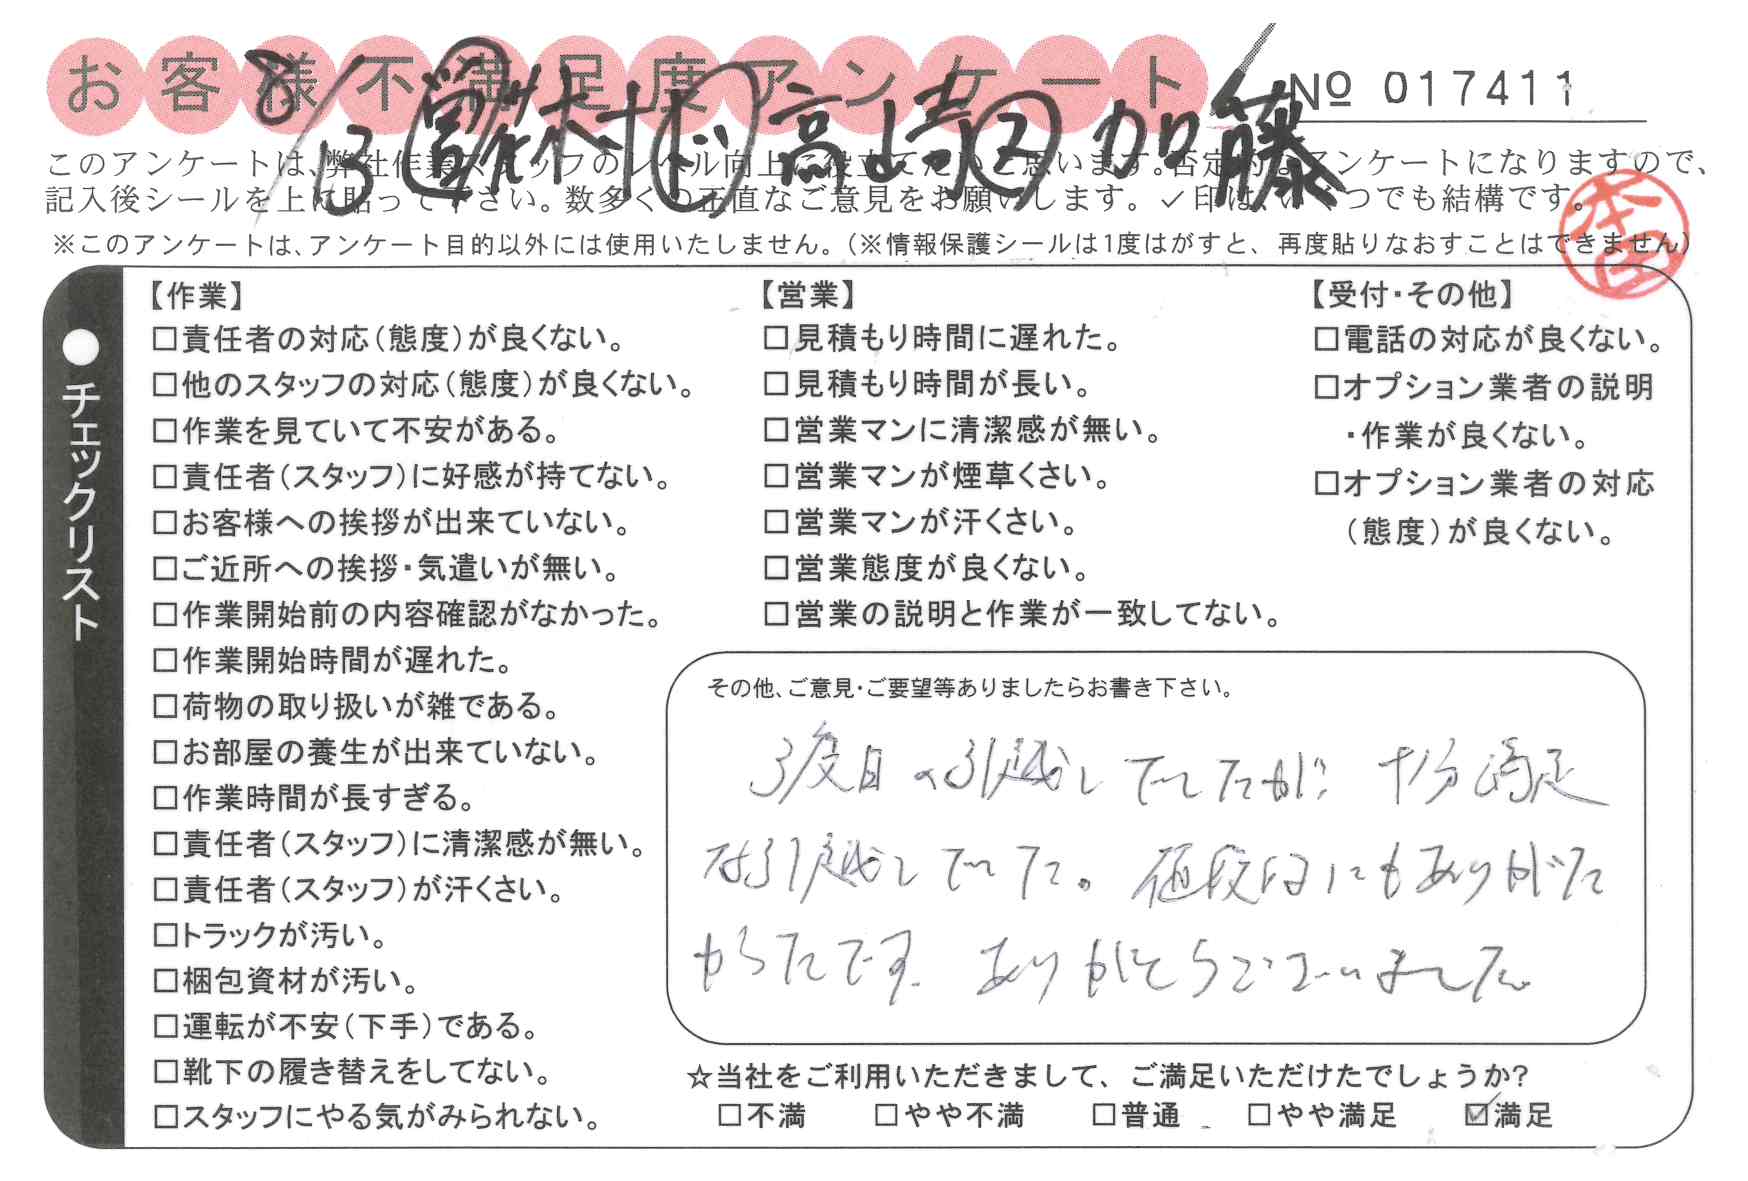 お客様不満足度アンケート
8/13 営 木村 ビ 高崎 ヌ 加藤
№ 017411
このアンケートは、弊社作業スタッフのレベル向上に役立てたいと思います。否定的なアンケートになりますので、
記入後シールを上に貼って下さい。数多くの正直なご意見をお願いします。✓印は、いくつでも結構です。
※このアンケートは、アンケート目的以外には使用いたしません。（※情報保護シールは1度はがすと、再度貼りなおすことはできません）
本田
●チェックリスト
【作業】
□責任者の対応（態度）が良くない。
□他のスタッフの対応（態度）が良くない。
□作業を見ていて不安がある。
□責任者（スタッフ）に好感が持てない。
□お客様への挨拶が出来ていない。
□ご近所への挨拶・気遣いが無い。
□作業開始前の内容確認がなかった。
□作業開始時間が遅れた。
□荷物の取り扱いが雑である。
□お部屋の養生が出来ていない。
□作業時間が長すぎる。
□責任者（スタッフ）に清潔感が無い。
□責任者（スタッフ）が汗くさい。
□トラックが汚い。
□梱包資材が汚い。
□運転が不安（下手）である。
□靴下の履き替えをしてない。
□スタッフにやる気がみられない。
【営業】
□見積もり時間に遅れた。
□見積もり時間が長い。
□営業マンに清潔感が無い。
□営業マンが煙草くさい。
□営業マンが汗くさい。
□営業態度が良くない。
□営業の説明と作業が一致してない。
【受付・その他】
□電話の対応が良くない。
□オプション業者の説明
・作業が良くない。
□オプション業者の対応
（態度）が良くない。
その他、ご意見・ご要望等ありましたらお書き下さい。
3度目の引越しでしたが、十分満足
な引越しでした。値段的にもありがた
かったです。ありがとうございました。
☆当社をご利用いただきまして、ご満足いただけたでしょうか?
□不満 □やや不満 □普通 □やや満足 ☑満足